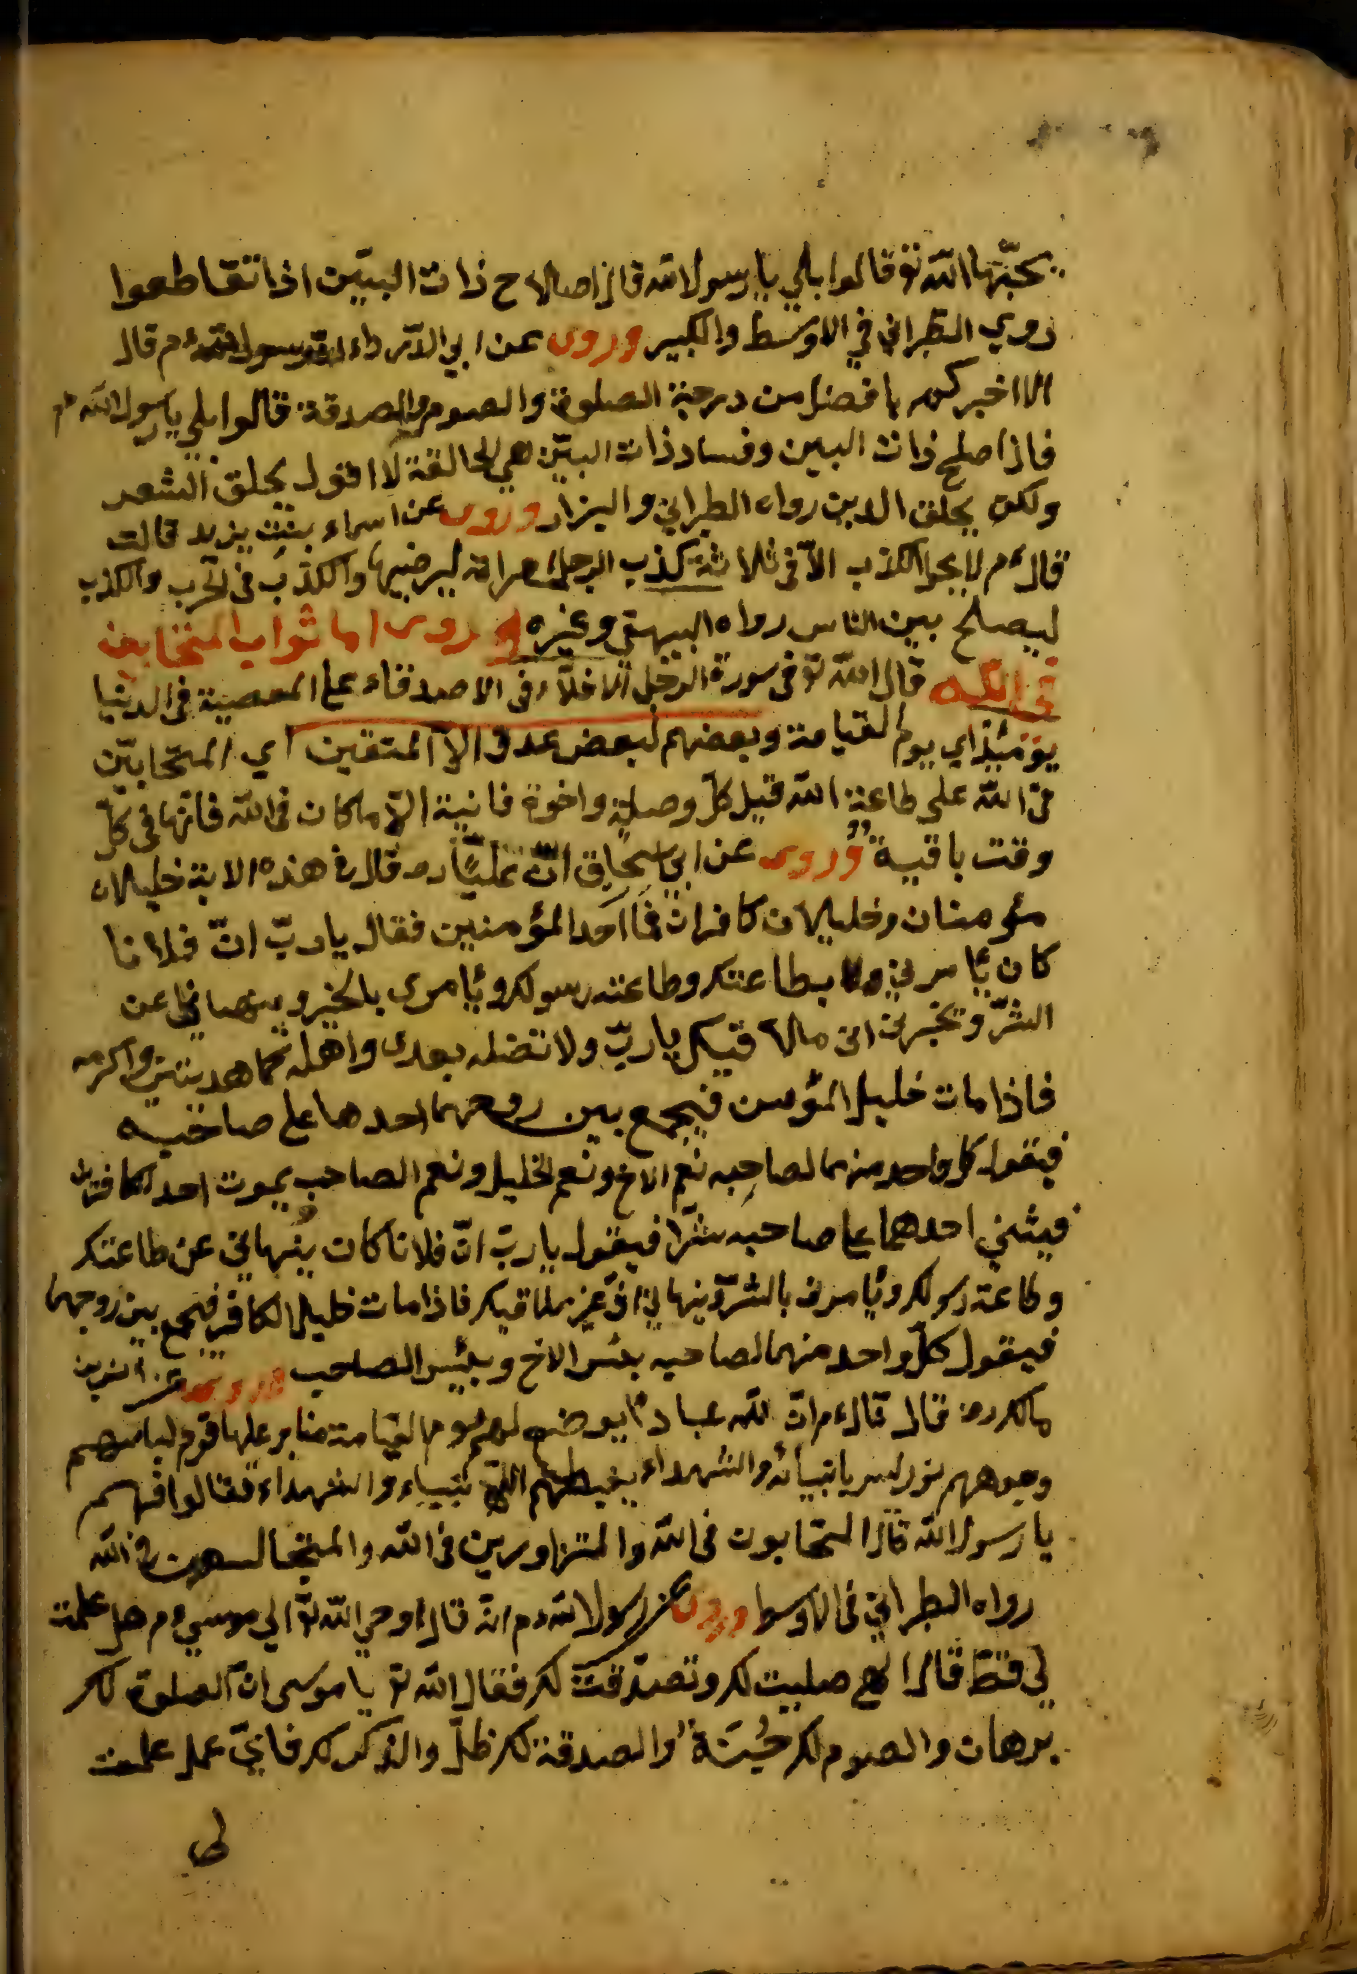 يحبّها الله تع قالوا بلي يا رسول الله قال اصلاح ذات البيّن اذا تقاطعوا
روي الطبراني في الاوسط والكبير وروى عن ابي الدرداء رسول الله ءم قال
الا اخبركم بافضل من درجة الصلوة والصوم والصدقة قالوا بلي يا رسول الله ءم
قال اصلح ذات البين وفساد ذات البيّن هي الحالقة لا اقول يحلق الشعر
ولكن يحلق الدين رواه الطبراني والبزار وروى عن اسماء بنت يزيد قالت
قال ءم لا يحل الكذب الاّ في ثلاثة كذب الرجل امراته ليرضيها والكذب في الحرب والكذب
ليصلح بين الناس رواه البيهقي وغيره وروى اما ثواب المتحابين
في الله قال الله تع في سورة الزخرف الاخلاّء في الاصدقاء على المعصية في الدنيا
يومئذ اي يوم القيامة وبعضهم لبعض عدو الاّ المتقين اي المتحابيّن
في الله على طاعة الله قيل كلّ وصلة واخوة فانية الاّ ما كان في الله فانّها في كلّ
وقت باقية وروى عن ابي اسحاق انّ عليّا رض قال في هذه الاية خليلان
مؤمنان وخليلان كافران فمات احد المؤمنين فقال يا ربّ انّ فلانا
كان يأمرني بطاعتك وطاعة رسولك ويأمرني بالخير وينهاني عن
الشرّ ويخبرني انى ملاق قيك يا ربّ ولا تضله بعدى واهده كما هديتني واكرمه
فاذا مات خليل المؤمن فيجمع بين روحهما احدها على صاحبه
فيقول كل واحد منهما لصاحبه نعم الاخ ونعم الخليل ونعم الصاحب يموت احد الكافرين
فيثني احدهما على صاحبه شرّا فيقول يا ربّ انّ فلانا كان ينهاني عن طاعتك
وطاعة رسولك ويأمرني بالشرّ وينهاني انّي غير ملاقيك فاذا مات خليل الكافر فيجمع بين روحهما
فيقول كلّ واحد منهما لصاحبه بئس الاخ وبئس الصاحب وروى عن انس بن
مالك رض قال قال ءم انّ لله عبادا يوضع لهم يوم القيامة منابر عليها قوم لباسهم
وجوههم نور ليس بانبيائه والشهداء يغبطهم الانبياء والشهداء فقالوا فهم
يا رسول الله قال المتحابون في الله والمتزاورين في الله والمتجالسون في الله
رواه الطبراني في الاوسط وروى عن رسول الله ءم انّه قال اوحي الله تع الي موسي ءم هل عملت
لي قطّ قال الهي صليت لك وتصدّقت لك فقال الله تع يا موسى انّ الصلوة لك
برهان والصوم لك جُنّة والصدقة لك ظلّ والذكر لك فايّ عمل عملت
لي